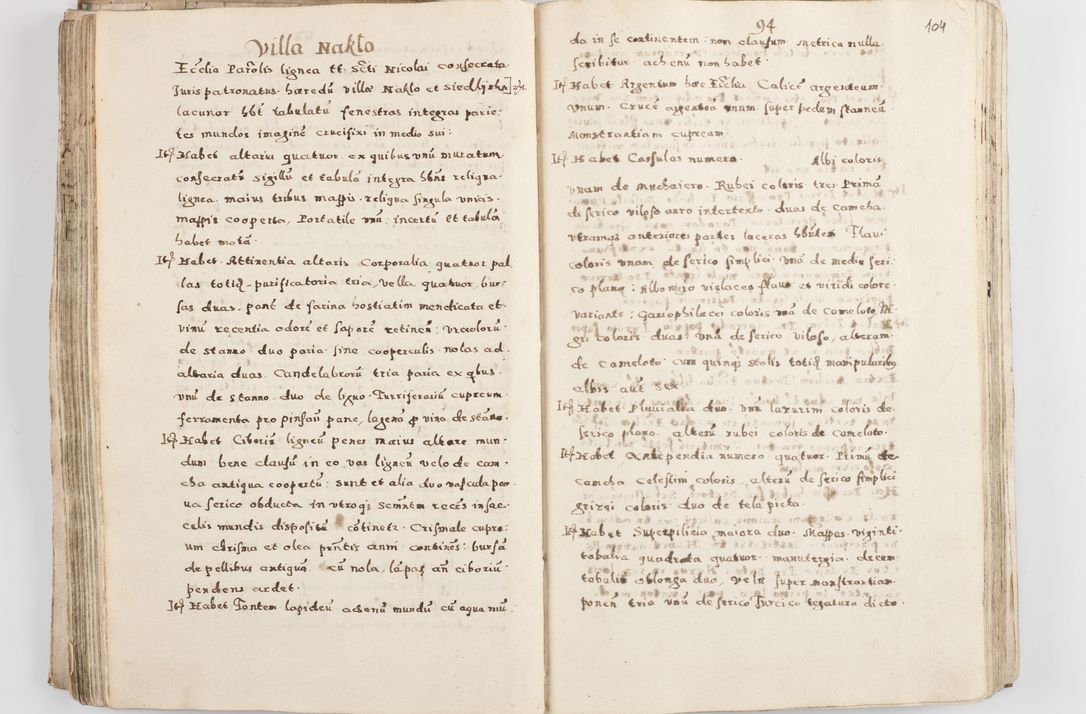 Villa Nakło
Ecclia Parolis lignea tt. Scti Nicolai consecrata
Iuris patronatus hæredū villæ Nakło et Siedliska
lacunar hbt tabulatū fenestras integras parie-
tes mundos imaginē crucifixi in medio sui:
Itē Habet altaria quatuor ex quibus unū muratum
consecratū sigillū et tabulā integra hbns reliqua
lignea maius tribus mappis reliqua singula unicis
mappis cooperta, Portatile unū incertū et tabulā
habet motā
Itē Habet Attinentia altaris Corporalia quatuor pal
las totiq purificatoria tria, vella quatuor, bur-
sas duas. panē de farina hostiatim mendicata et
vinū recentia odorē et saporē retinen: Vrceolorū
de stanno duo paria sine cooperculis nolas ad
altaria duas Candelabrorū tria paria ex qbus
unū de stanno duo de ligno Turriferariū cupreum
ferramenta pro pinsan pane, lagenā p vino de stano
Itē Habet Ciboriū ligneū penes maius altare mun-
dum bene clausū in eo vas ligneū velo de cam
cha antiqua coopertū: sunt et alia duo vascula par
ua serico obducta in utroq; semntm recēs insec-
culis mundis dispositū cōtinetr. Crismale cupre-
um chrisma et olea prntis anni continēs: bursā
de pellibus antiquā cū nola, lāpas an ciboriū
pendens ardet
Itē Habet Fontem lapideū achenū mundū cū aqua mū
94
104
da in se continentem: non clausum metrica nulla
scribitur achenū non habet
Itē Habet Argentum hæc Ecclia Calicē argenteum
unum Crucē argentea unam super pedem stanneū
Monstrantiam cupream
Itē Habet Cassulas numero Albi coloris
unam de Muchaiero. Rubei coloris tres Primā
di serico viloso auro intertexto duas de Camcha
utramq; anteriores partes laceras hbntem Flavi
coloris unam de serico simplici unā de medio seri-
co plano: Albo nigro violaceo flavo et viridi colore
variante: Gariophilacei coloris unā de Cameloto, Ni
gri coloris duas unā de serico viloso, alteram
de Cameloto cum quinq; stolis totiq manipularibus
albis aut sex
Itē Habet Pluvialia duo unū lazurini coloris de
serico plano alterū rubei coloris de Cameloto
Itē Habet Antependia numero quatuor Primū de
camcha Celestini coloris, alterū de serico simplici
grizei coloris duo de tela picta
Itē Habet Superpilicia maiora duo Mappas viginti
tobalia quadrata quatuor manutergia decem
tobalis oblonga duo, vela super monstrantiam
ponen tria unū de serico Turcico tegatura dicto